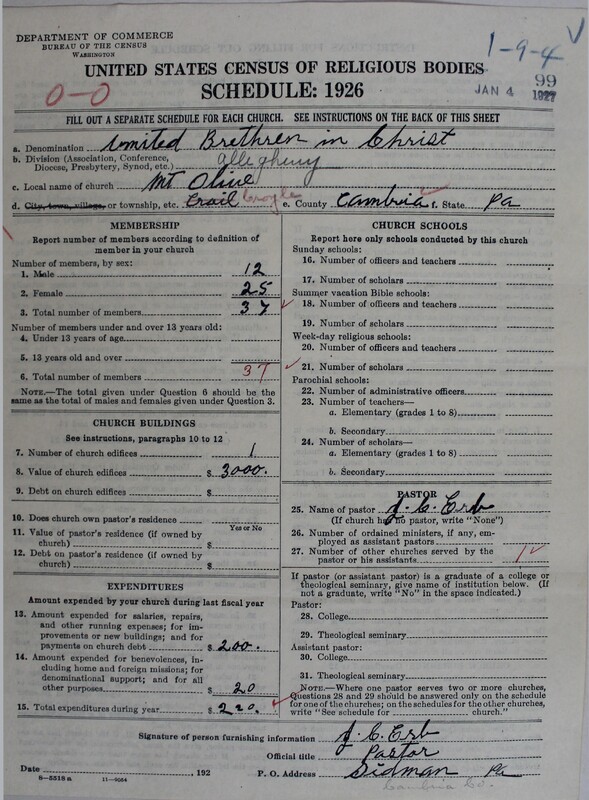 DEPARTMENT OF COMMERCE
BUREAU OF THE CENSUS
WASHINGTON
1-9-4 V
UNITED STATES CENSUS OF RELIGIOUS BODIES
SCHEDULE: 1926
0-0
99
JAN 4 1927
FILL OUT A SEPARATE SCHEDULE FOR EACH CHURCH. SEE INSTRUCTIONS ON THE BACK OF THIS SHEET
a. Denomination United Brethren in Christ
b. Division (Association, Conference, Diocese, Presbytery, Synod, etc.) Allegheny
c. Local name of church Mt Olive
d. City, town, village, or township, etc. e. County Cambria f. State Pa
MEMBERSHIP
Report number of members according to definition of
member in your church
Number of members, by sex:
1. Male 12
2. Female 25
3. Total number of members 37
Number of members under and over 13 years old:
4. Under 13 years of age
5. 13 years old and over
6. Total number of members 37
NOTE.—The total given under Question 6 should be
the same as the total of males and females given under Question 3.
CHURCH BUILDINGS
See instructions, paragraphs 10 to 12
7. Number of church edifices 1
8. Value of church edifices $ 3000.
9. Debt on church edifices $
10. Does church own pastor's residence
Yes or No
11. Value of pastor's residence (if owned by
church) $
12. Debt on pastor's residence (if owned by
church) $
EXPENDITURES
Amount expended by your church during last fiscal year
13. Amount expended for salaries, repairs,
and other running expenses; for im-
provements or new buildings; and for
payments on church debt $ 200.
14. Amount expended for benevolences, in-
cluding home and foreign missions; for
denominational support; and for all
other purposes $ 20
15. Total expenditures during year $ 220.
CHURCH SCHOOLS
Report here only schools conducted by this church
Sunday schools:
16. Number of officers and teachers
17. Number of scholars
Summer vacation Bible schools:
18. Number of officers and teachers
19. Number of scholars
Week-day religious schools:
20. Number of officers and teachers
21. Number of scholars
Parochial schools:
22. Number of administrative officers
23. Number of teachers—
a. Elementary (grades 1 to 8)
b. Secondary
24. Number of scholars—
a. Elementary (grades 1 to 8)
b. Secondary
PASTOR
25. Name of pastor J. C. Erb
(If church has no pastor, write "None")
26. Number of ordained ministers, if any, em-
ployed as assistant pastors
27. Number of other churches served by the
pastor or his assistants 1
If pastor (or assistant pastor) is a graduate of a college or
theological seminary, give name of institution below. (If
not a graduate, write "No" in the space indicated.)
Pastor:
28. College
29. Theological seminary
Assistant pastor:
30. College
31. Theological seminary
NOTE.—Where one pastor serves two or more churches,
Questions 28 and 29 should be answered only on the schedule
for one of the churches; on the schedules for the other churches,
write "See schedule for church."
Signature of person furnishing information J. C. Erb
Official title Pastor
Date , 192 P. O. Address Sidman Pa
Cambria Co.
8—5518a 11—9054